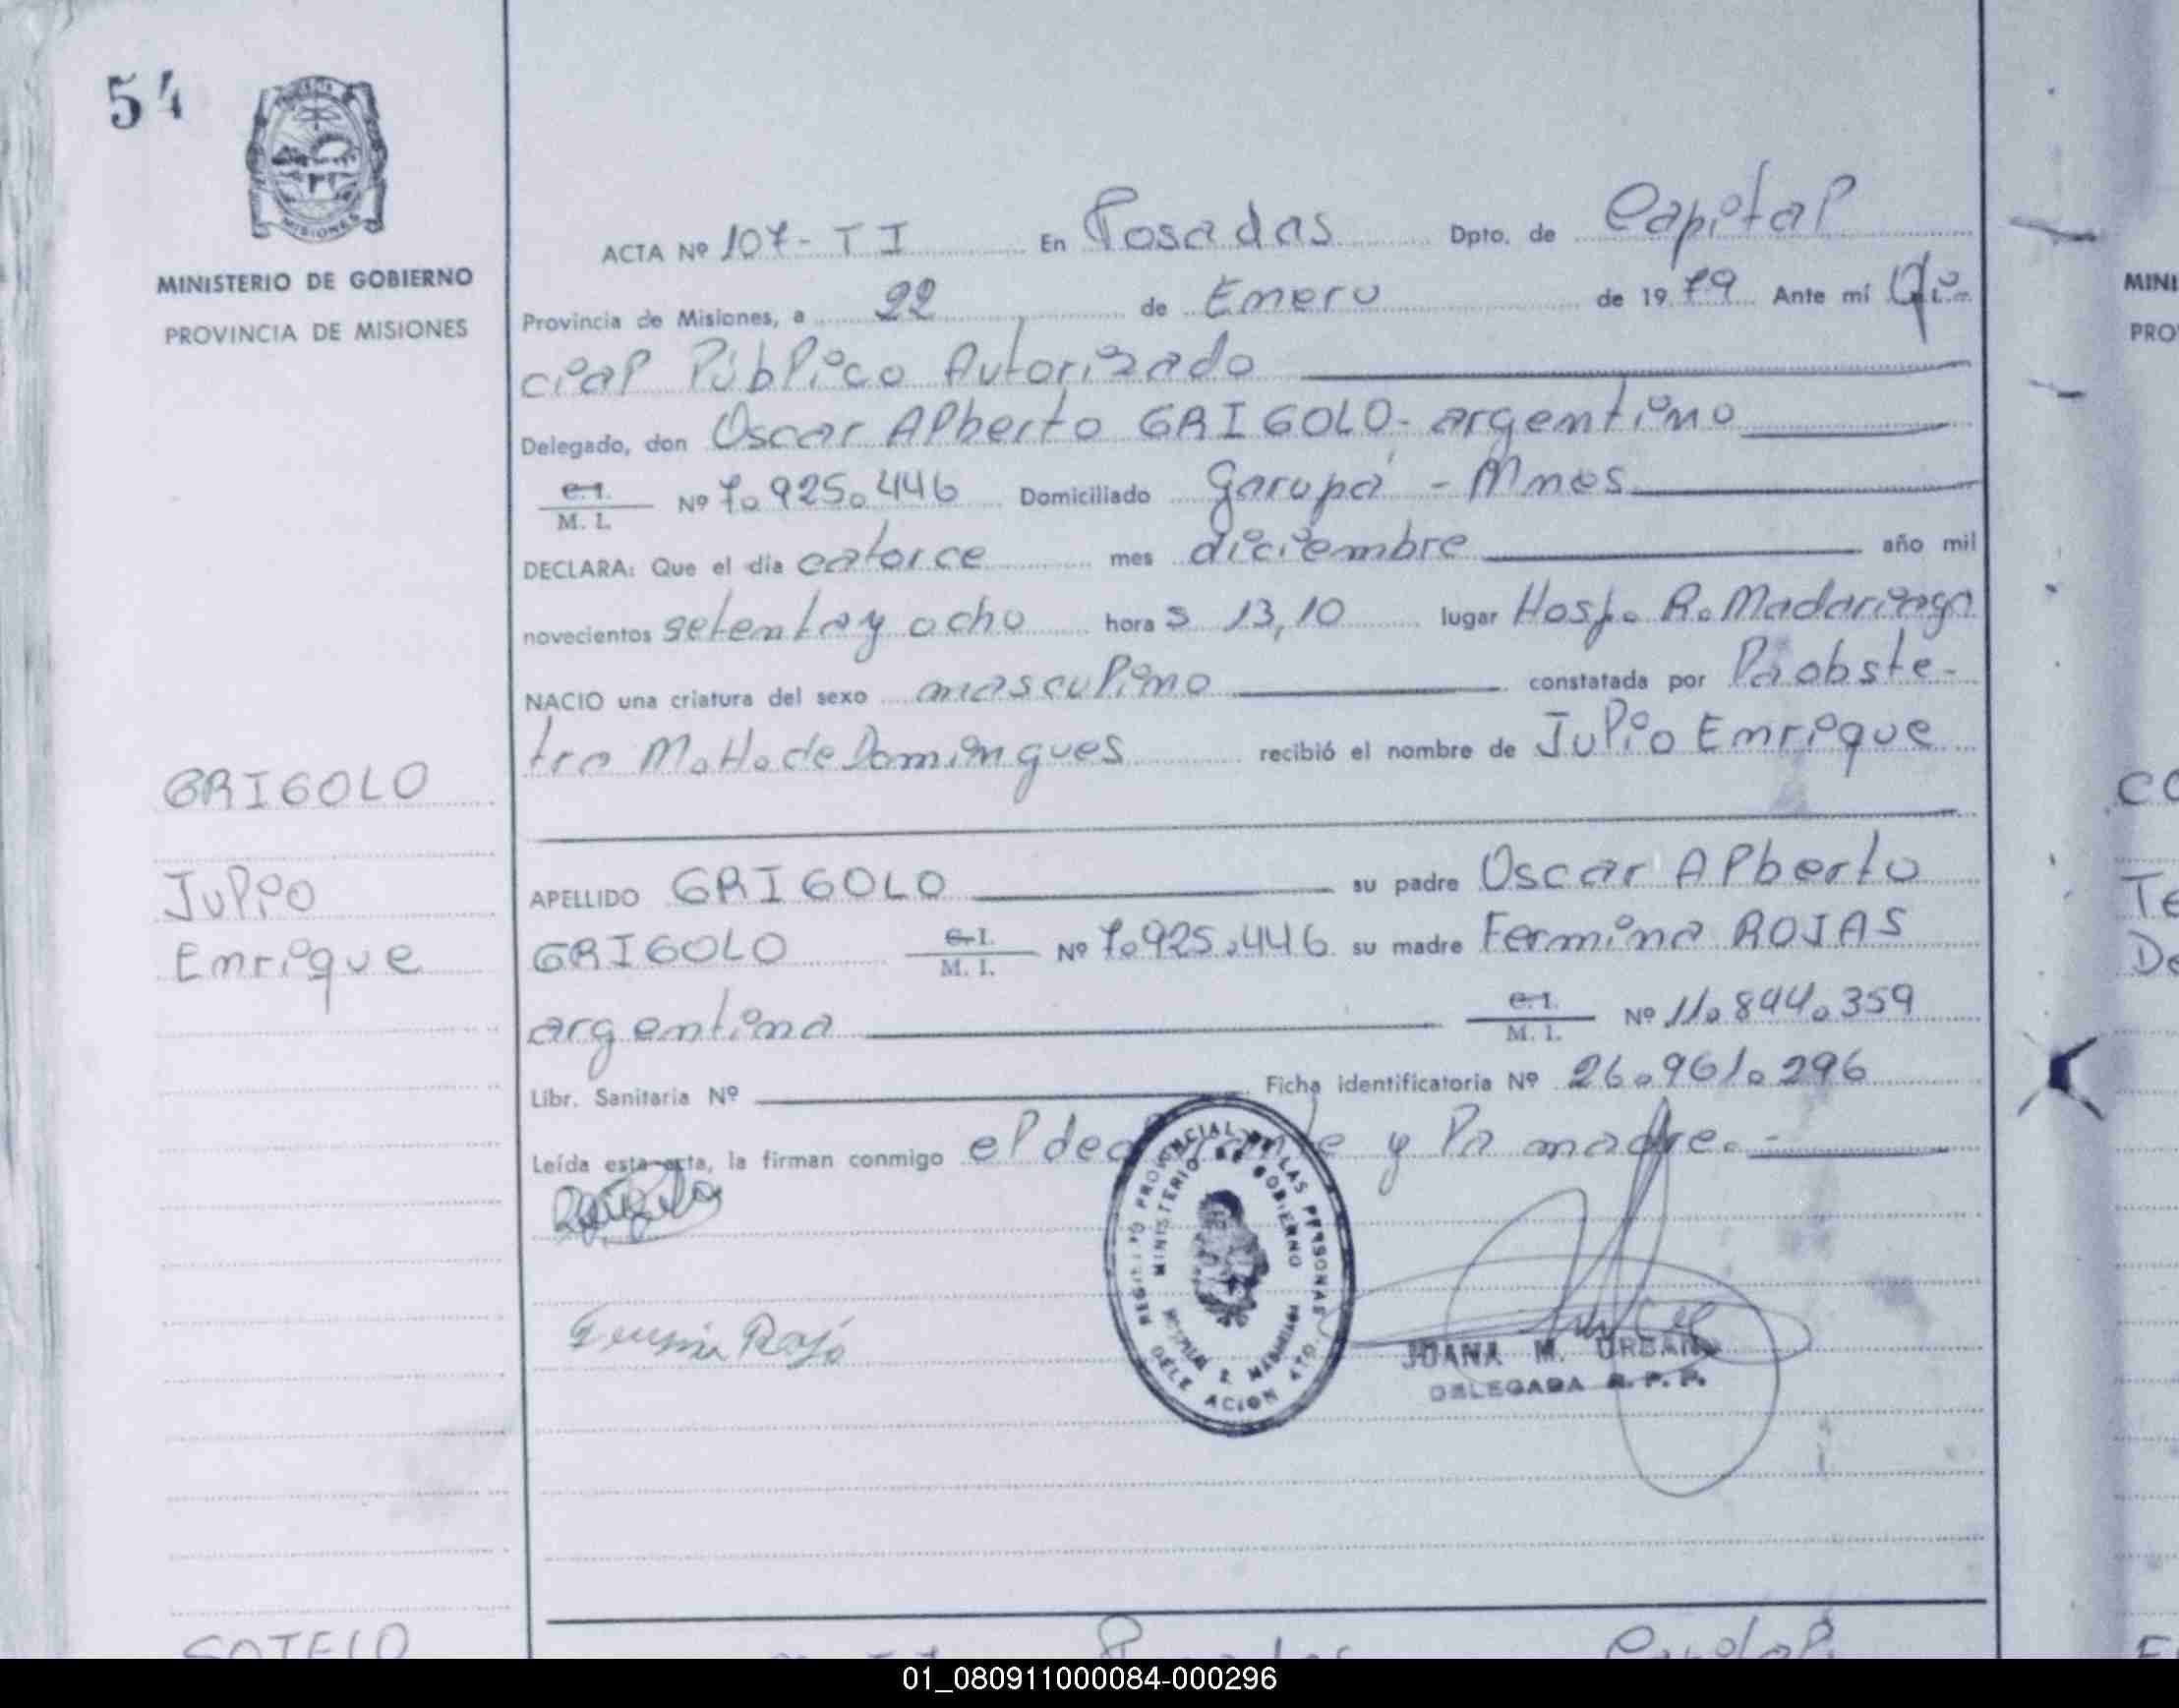 54
MISIONES
MINISTERIO DE GOBIERNO
PROVINCIA DE MISIONES
GRIGOLO
Julio
Enrique
ACTA Nº 107- T I En Posadas Dpto. de Capital
Provincia de Misiones, a 22 de Enero de 1979 Ante mí Ofi-
cial Público Autorizado
Delegado, don Oscar Alberto GRIGOLO- argentino
C. I.
M. I. Nº 7.925.446 Domiciliado Garupá - Mnes
DECLARA: Que el día catorce mes diciembre año mil
novecientos setenta y ocho hora s 13,10 lugar Hosp. R. Madariaga
NACIO una criatura del sexo masculino constatada por La obste-
tra M.H. de Domingues recibió el nombre de Julio Enrique
APELLIDO GRIGOLO su padre Oscar Alberto
GRIGOLO C. I. M. I. Nº 7.925.446 su madre Fermina ROJAS
argentina C. I. M. I. Nº 11.844.359
Libr. Sanitaria Nº Ficha identificatoria Nº 26.961.296
Leída esta acta, la firman conmigo el declarante y la madre.-
REGISTRO PROVINCIAL DE LAS PERSONAS
MINISTERIO DE GOBIERNO
DELEGACION
JUANA M. URBAN
DELEGADA R. P. P.
MINI
PRO
CO
Te
De
SOTELO
01_080911000084-000296